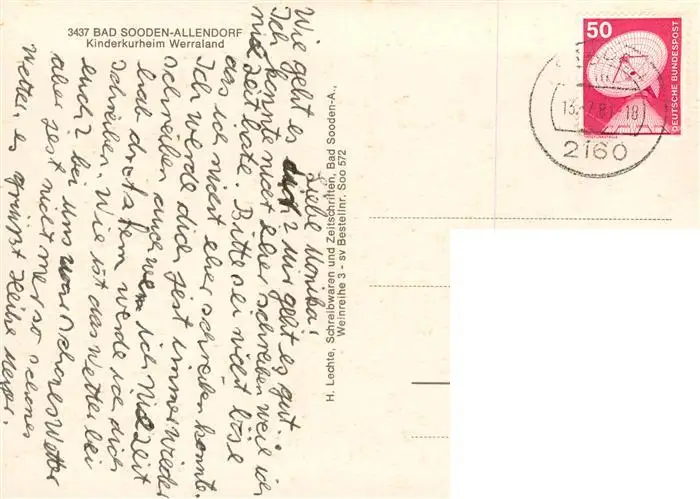 3437 BAD SOODEN-ALLENDORF
Kinderkurheim Werraland
50
DEUTSCHE BUNDESPOST
13.-7.81-18
2160
H. Lechte, Schreibwaren und Zeitschriften, Bad Sooden-A.,
Weinreihe 3 - sv Bestellnr. Soo 572
Liebe Monika!
Wie geht es dich? Mir geht es gut.
Ich konnte nicht eher schreiben weil ich
nie zeit hate. Bitte sei nicht böse
das ich nicht eher schreiben konnte.
Ich werde dich jezt immer wieder
schreiben auch wen ich nie zeit
hab trotzdem werde ich dich
schreiben. Wie ist das Wetter bei
euch? bei uns war schones Wetter
aber jezt nicht mer so schones
Wetter, es grüßt Heike Meyer.